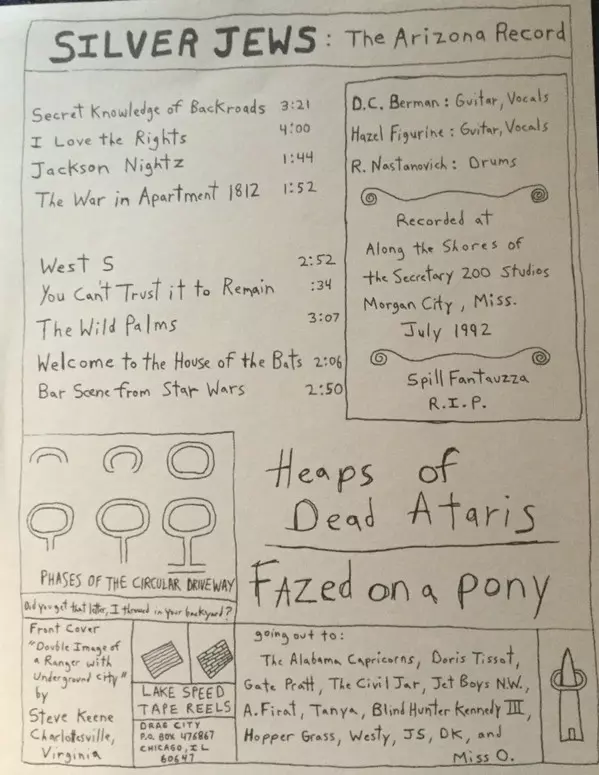 SILVER JEWS: The Arizona Record
Secret Knowledge of Backroads 3:21
I Love the Rights 4:00
Jackson Nightz 1:44
The War in Apartment 1812 1:52
West S 2:52
You Can't Trust it to Remain :34
The Wild Palms 3:07
Welcome to the House of the Bats 2:06
Bar Scene from Star Wars 2:50
D.C. Berman: Guitar, Vocals
Hazel Figurine: Guitar, Vocals
R. Nastanovich: Drums
Recorded at
Along the Shores of
the Secretary 200 Studios
Morgan City, Miss.
July 1992
Spill Fantauzza
R.I.P.
Heaps of
Dead Ataris
FAZed on a pony
PHASES OF THE CIRCULAR DRIVEWAY
Did you get that letter, I throwed in your backyard?
Front Cover
"Double Image of
a Ranger with
Underground City"
by
Steve Keene
Charlotesville,
Virginia
LAKE SPEED
TAPE REELS
DRAG CITY
P.O. BOX 476867
CHICAGO, IL
60647
going out to:
The Alabama Capricorns, Doris Tissot,
Gate Pratt, The Civil Jar, Jet Boys N.W.,
A. Firat, Tanya, Blind Hunter Kennedy III,
Hopper Grass, Westy, JS, DK, and
Miss O.